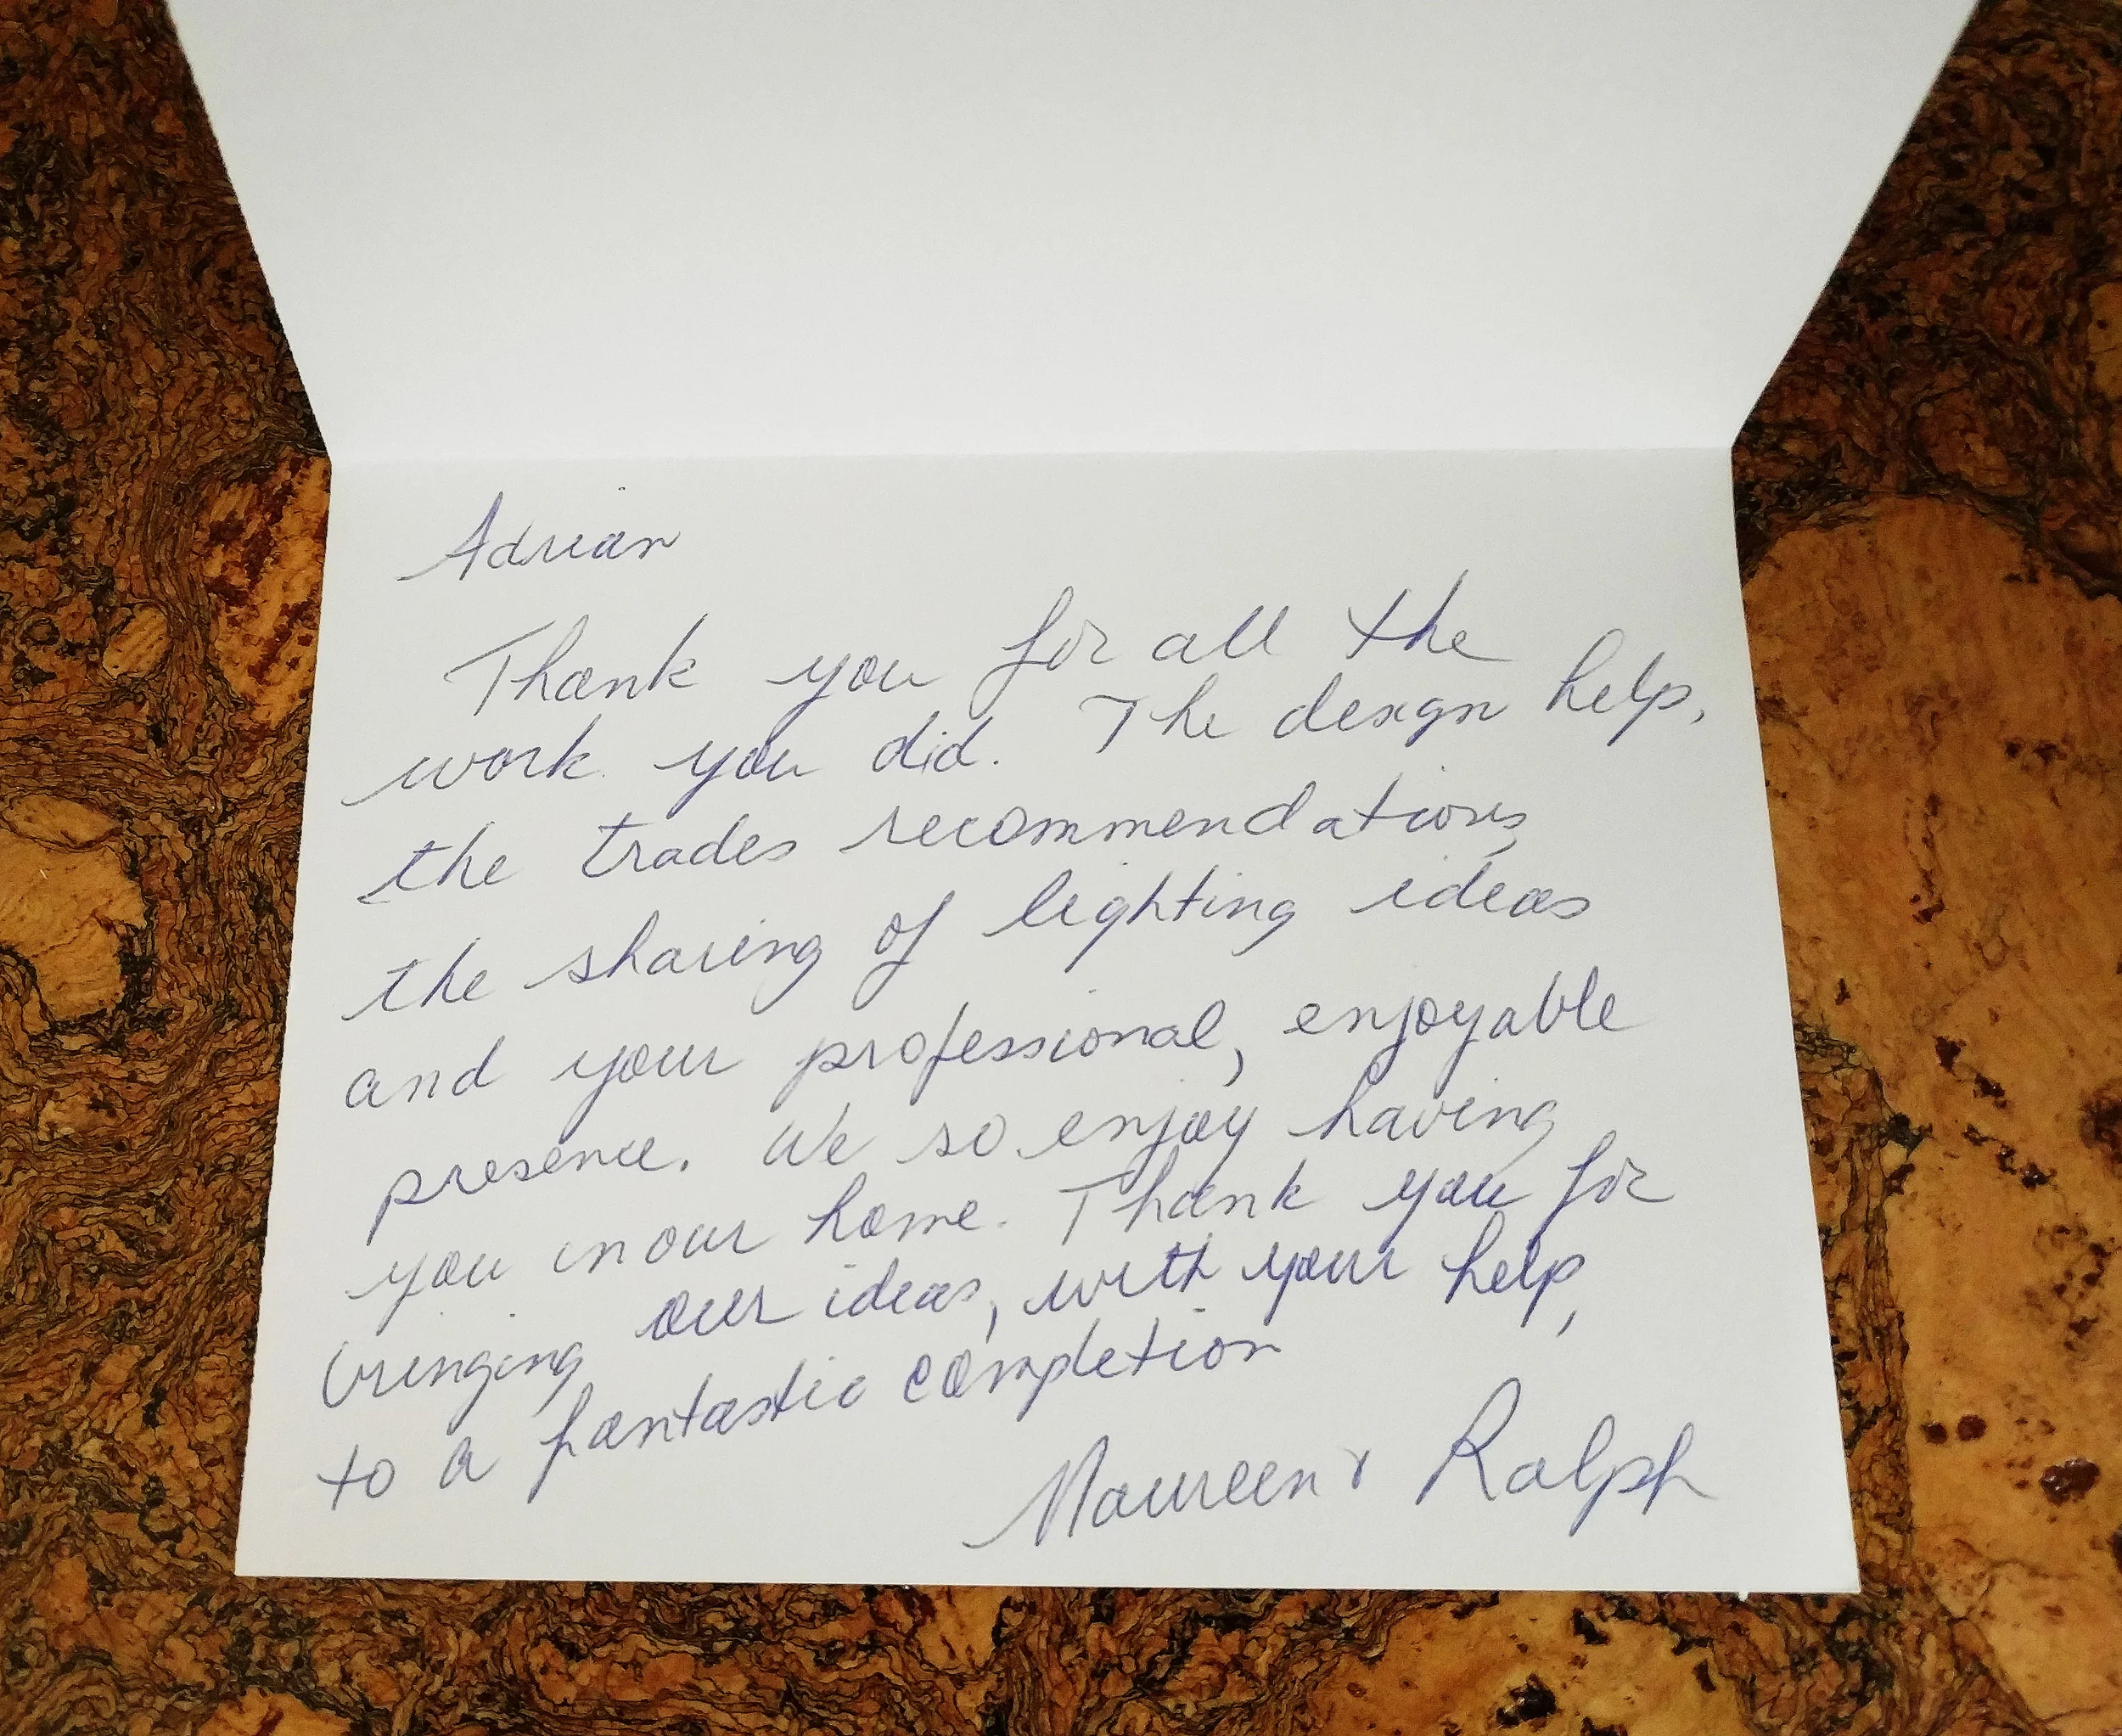 Adrian
Thank you for all the
work you did. The design help,
the trades recommendations,
the sharing of lighting ideas
and your professional, enjoyable
presence. We so enjoy having
you in our home. Thank you for
bringing our ideas, with your help,
to a fantastic completion
Maureen & Ralph